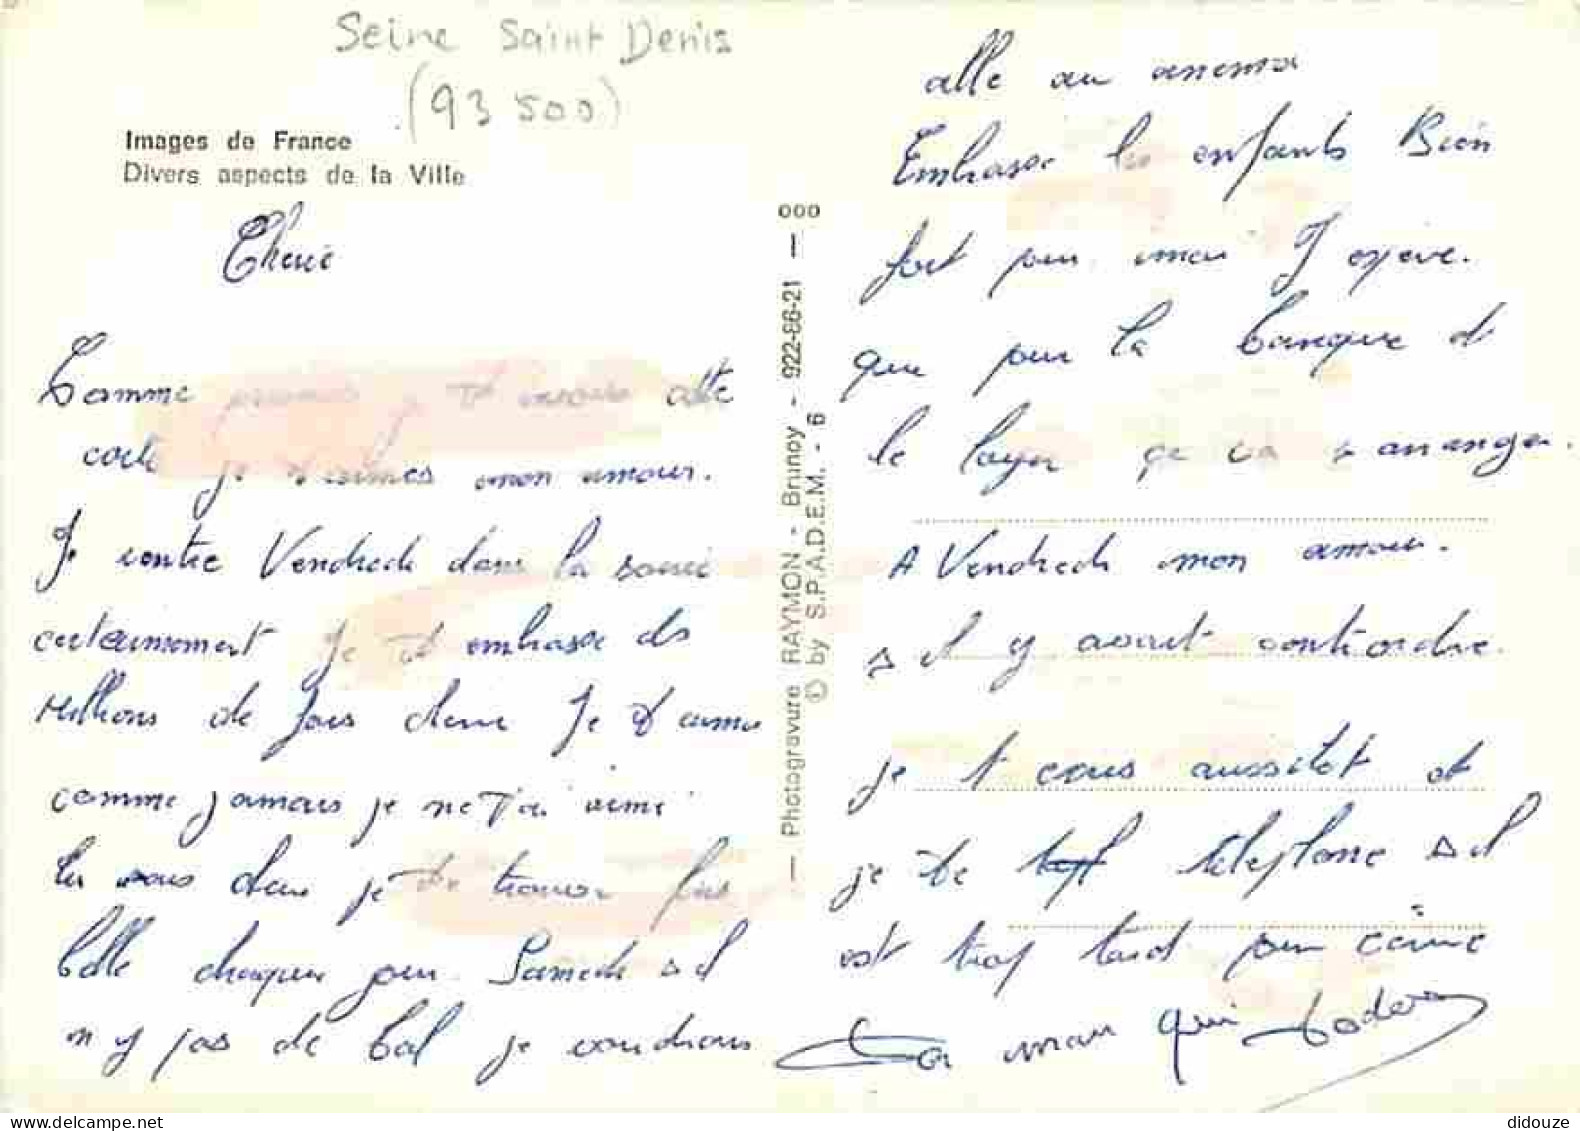 Seine Saint Denis
(93 500)
Images de France
Divers aspects de la Ville
Cherie
Comme promis je t envoie cette
carte je t'aimes mon amour.
Je rentre Vendredi dans la soirée
certainement je te embrasse des
Millions de fois dans Je t aime
comme jamais je ne t'ai aimé
tu sais dans je te trouve plus
belle chaque jour. Samedi s il
n y pas de bal je voudrais
— Photogravure RAYMON - Brunoy - 922-66-21 — 000
© by S.P.A.D.E.M. - 6
allé au cinema
Embrasse les enfants Bien
fort pour moi J espère.
que pour la banque et
le loyer ça va s arranger.
A Vendredi mon amour.
s il y avait contreordre
je t ecris aussitot et
je te telephone s il
est trop tard pour écrire
Ton mari qui t'adore
didouze